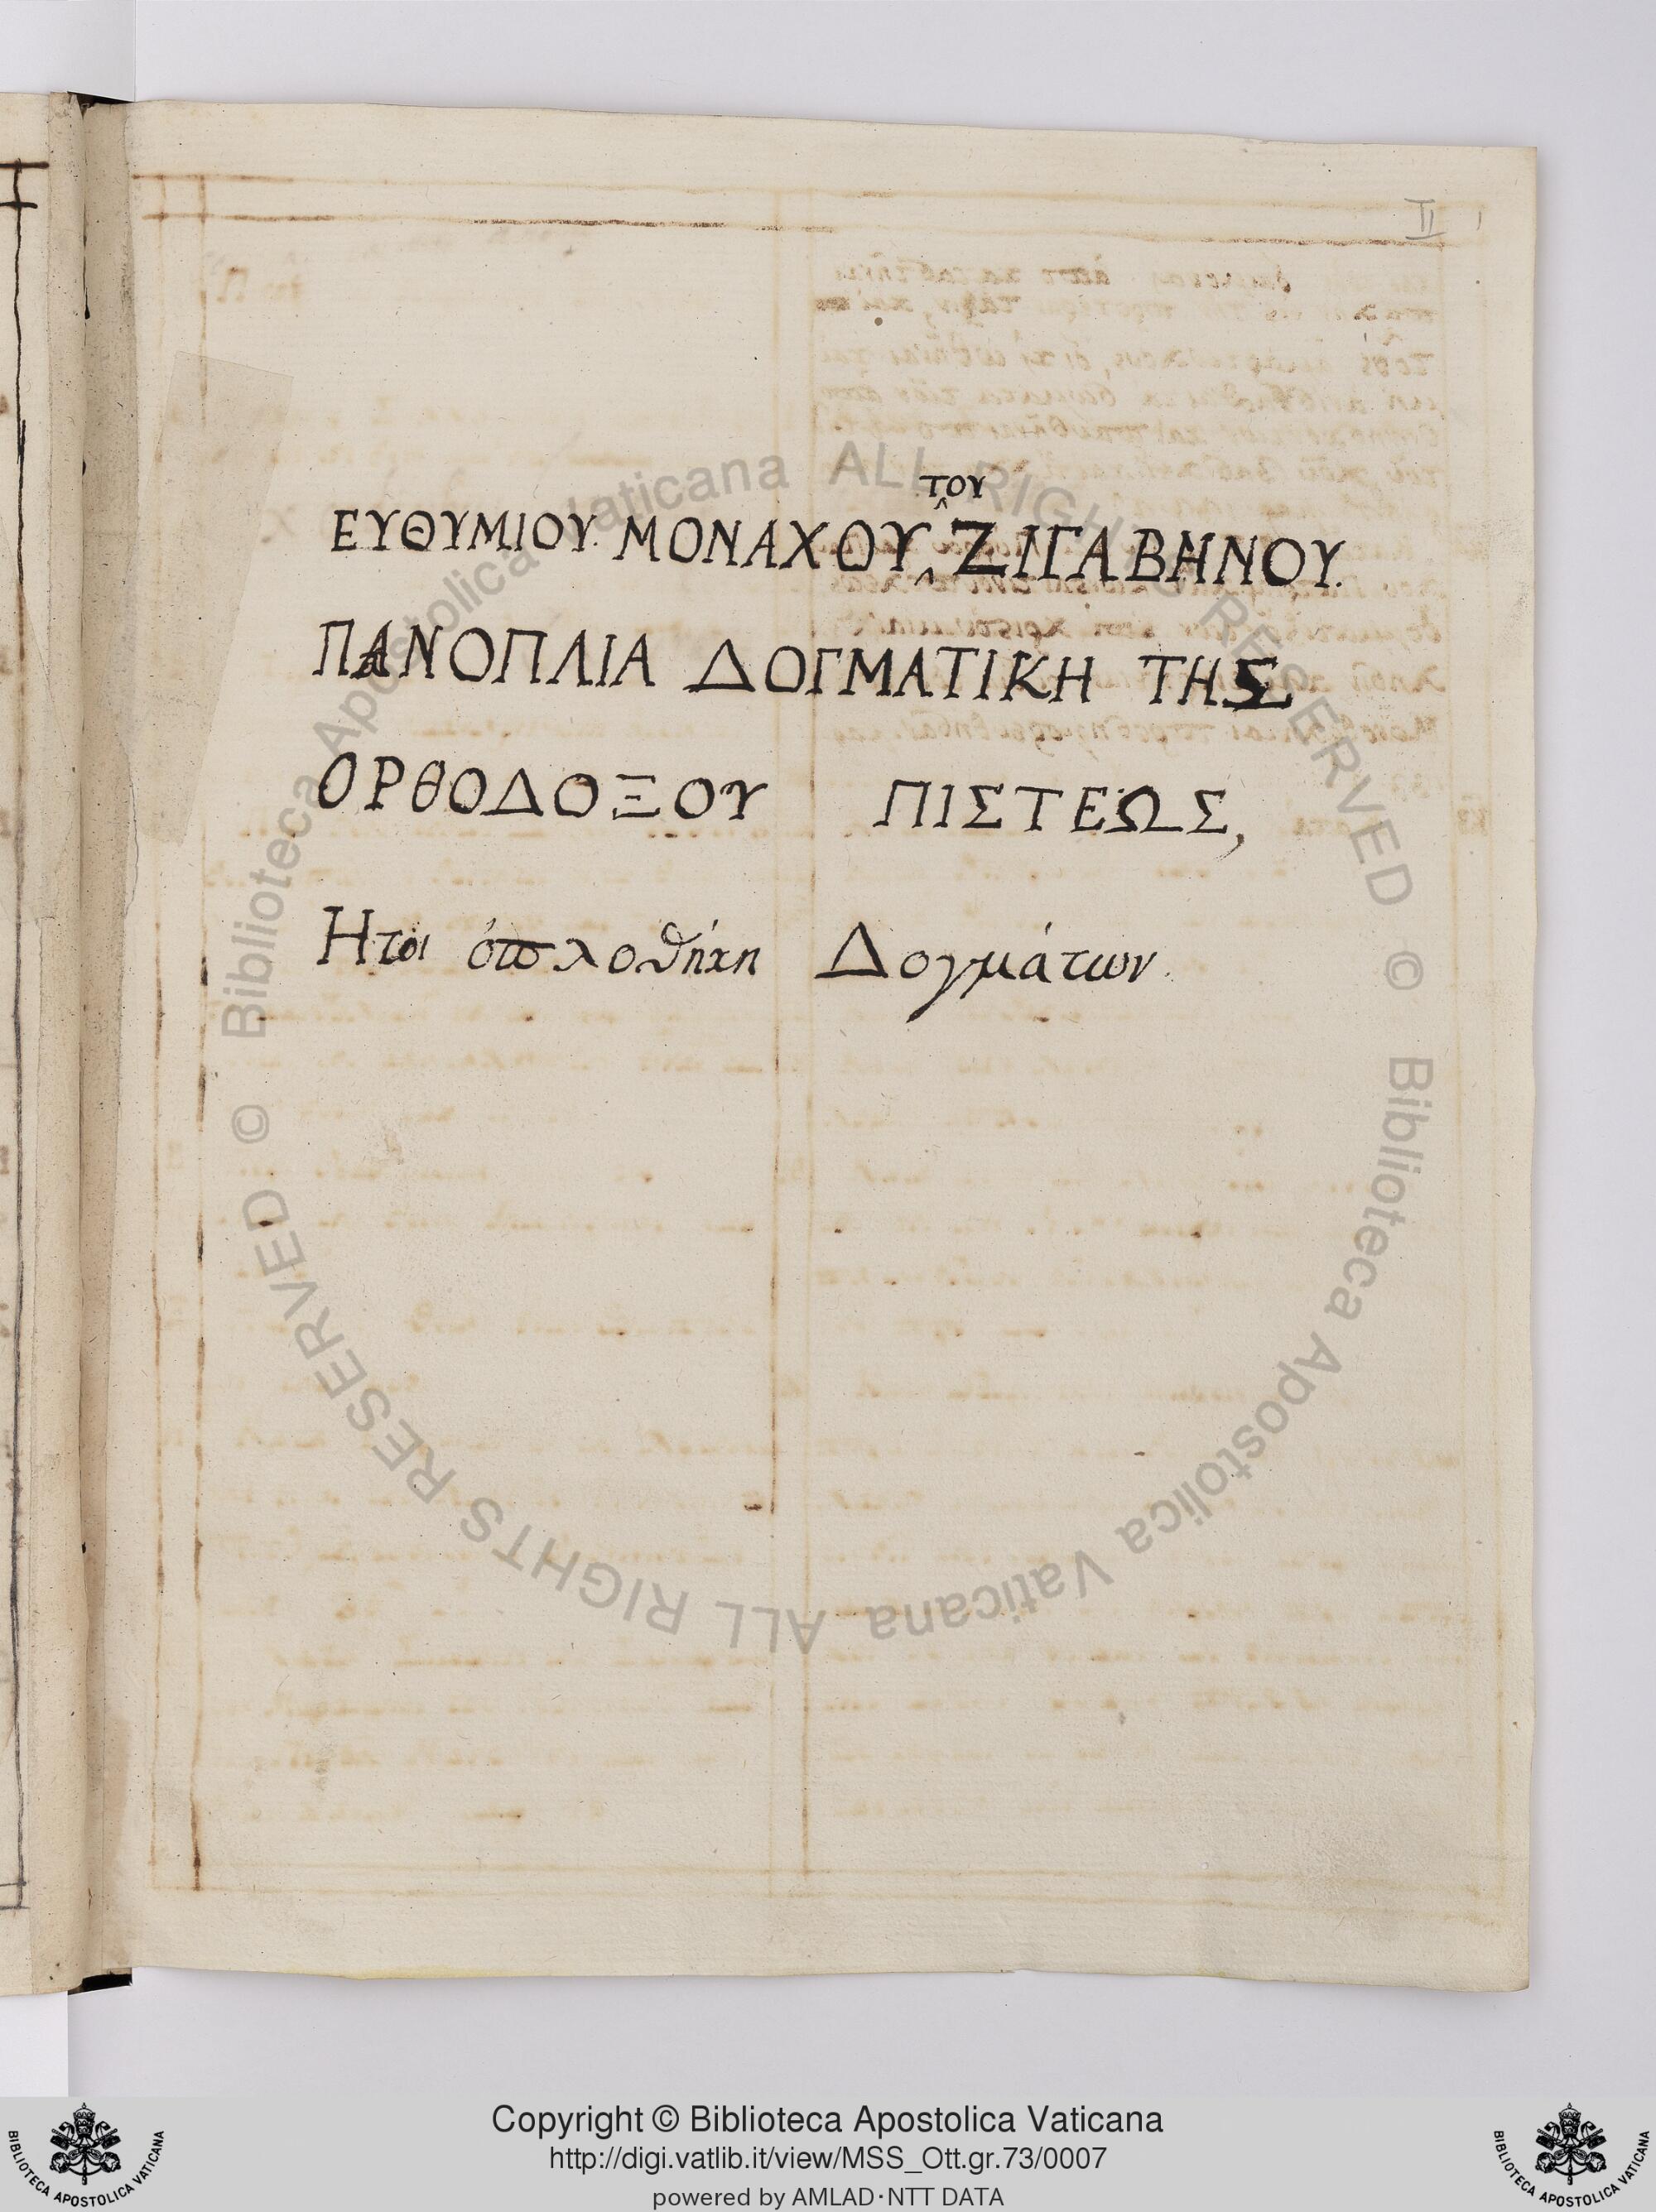 II
ΕΥΘΥΜΙΟΥ. ΜΟΝΑΧΟΥ ΤΟΥ ΖΙΓΑΒΗΝΟΥ.
ΠΑΝΟΠΛΙΑ ΔΟΓΜΑΤΙΚΗ ΤΗΣ
ΟΡΘΟΔΟΞΟΥ ΠΙΣΤΕΩΣ,
Ητοι ὁπλοθήκη Δογμάτων.
© Biblioteca Apostolica Vaticana ALL RIGHTS RESERVED
© Biblioteca Apostolica Vaticana ALL RIGHTS RESERVED
Copyright © Biblioteca Apostolica Vaticana
http://digi.vatlib.it/view/MSS_Ott.gr.73/0007
powered by AMLAD·NTT DATA
BIBLIOTECA APOSTOLICA VATICANA
BIBLIOTECA APOSTOLICA VATICANA